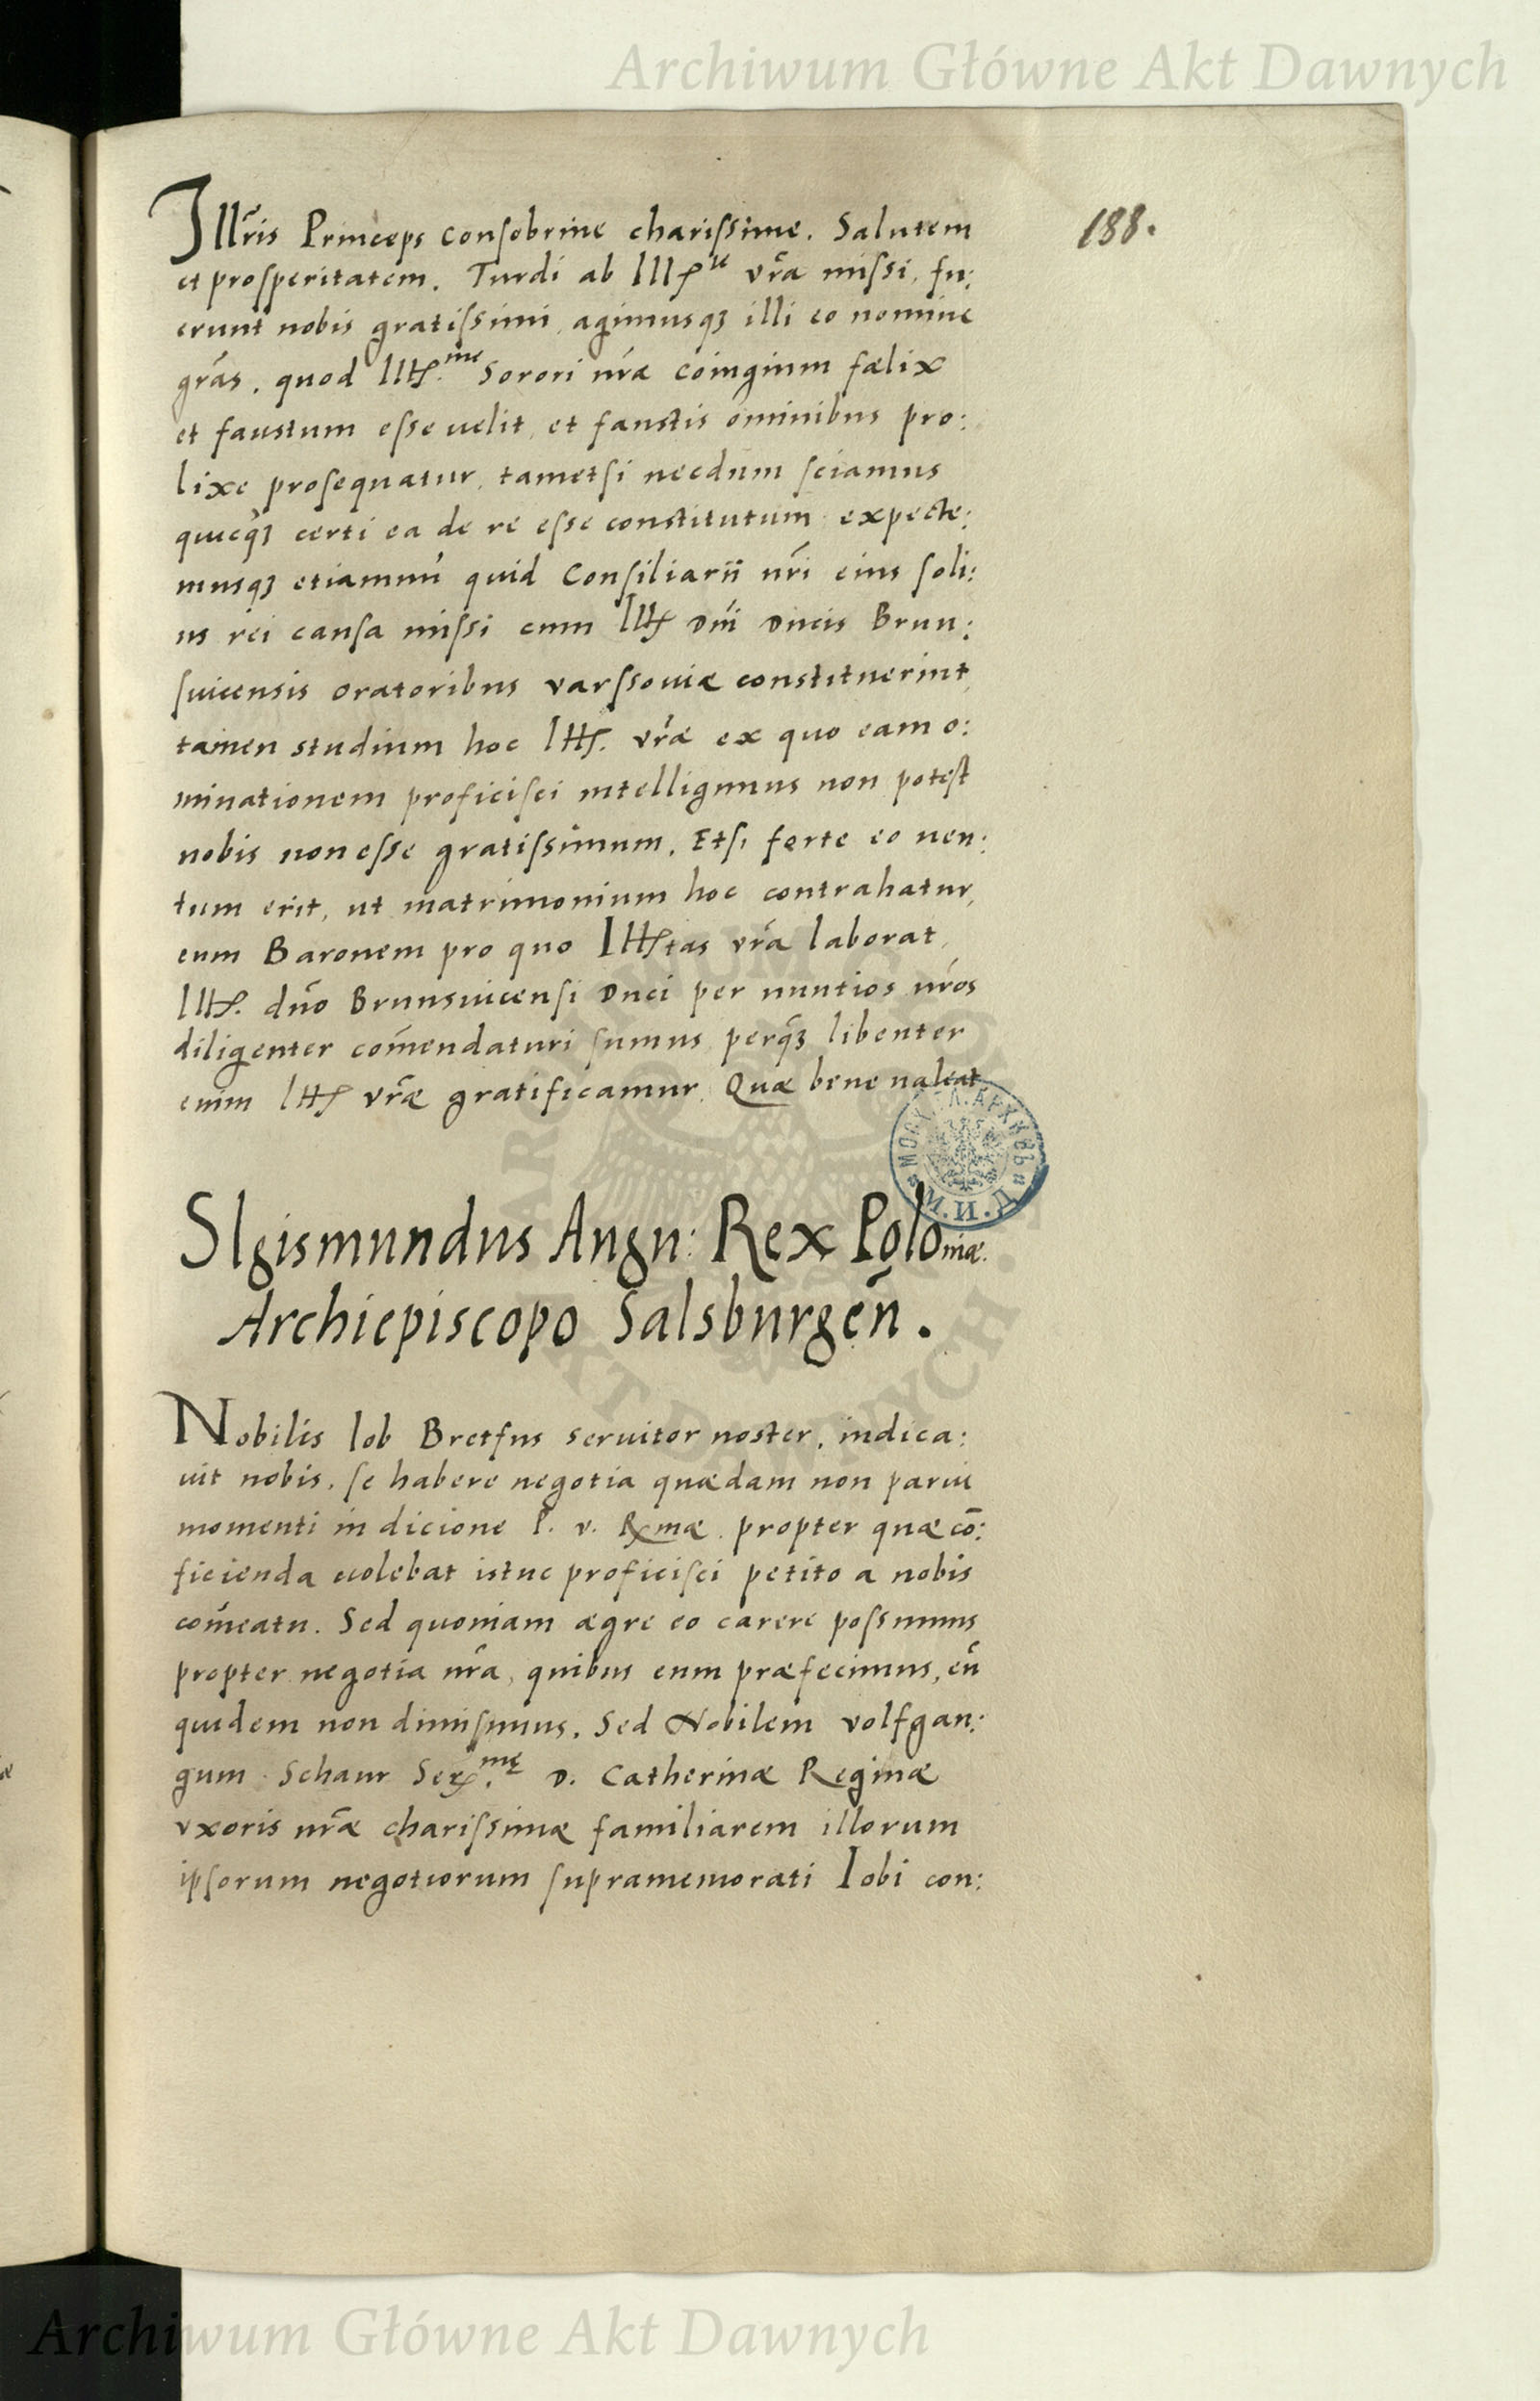 Archiwum Główne Akt Dawnych
188.
Illr̃is Princeps consobrine charissime. Salutem
et prosperitatem. Turdi ab Ill vr̃a missi, fu:
erunt nobis gratissimi, agimusqȝ illi eo nomine
gr̃as, quod Ill.me Sorori nr̃æ coniugium fælix
et faustum esse uelit, et faustis ominibus pro:
lixe prosequatur, tametsi necdum sciamus
quicq̃ȝ certi ea de re esse constitutum expecte:
musqȝ etiamnũ quid Consiliarii nr̃i eius soli:
us rei causa missi cum Ill Dñi Ducis Brun:
suicensis oratoribus Varssouiæ constituerint,
tamen studium hoc Ill. vr̃æ ex quo eam o:
minationem proficisci intelligimus non potest
nobis non esse gratissimum. Etsi forte eo uen:
tum erit, ut matrimonium hoc contrahatur,
eum Baronem pro quo Illtas vr̃a laborat,
Ill. dño Brunsuicensi Duci per nuntios nr̃os
diligenter com̃endaturi sumus, perq̃ȝ libenter
enim Ill vr̃æ gratificamur. Quæ bene ualeat
SIgismundus Augu: Rex Poloniæ.
Archiepiscopo Salsburgeñ.
Nobilis Iob Bretfus seruitor noster, indica:
uit nobis, se habere negotia quædam non parui
momenti in dicione P. v. Rmæ. propter quæ cõ:
ficienda uolebat istuc proficisci petito a nobis
com̃eatu. Sed quoniam ægre eo carere possumus
propter negotia nr̃a, quibus eum præfecimus, eũ
quidem non dimisimus. Sed Nobilem Volfgan:
gum Schaur Ser.mę D. Catherinæ Reginæ
vxoris nr̃æ charissimæ familiarem illorum
ipsorum negotiorum supramemorati Iobi con:
Archiwum Główne Akt Dawnych